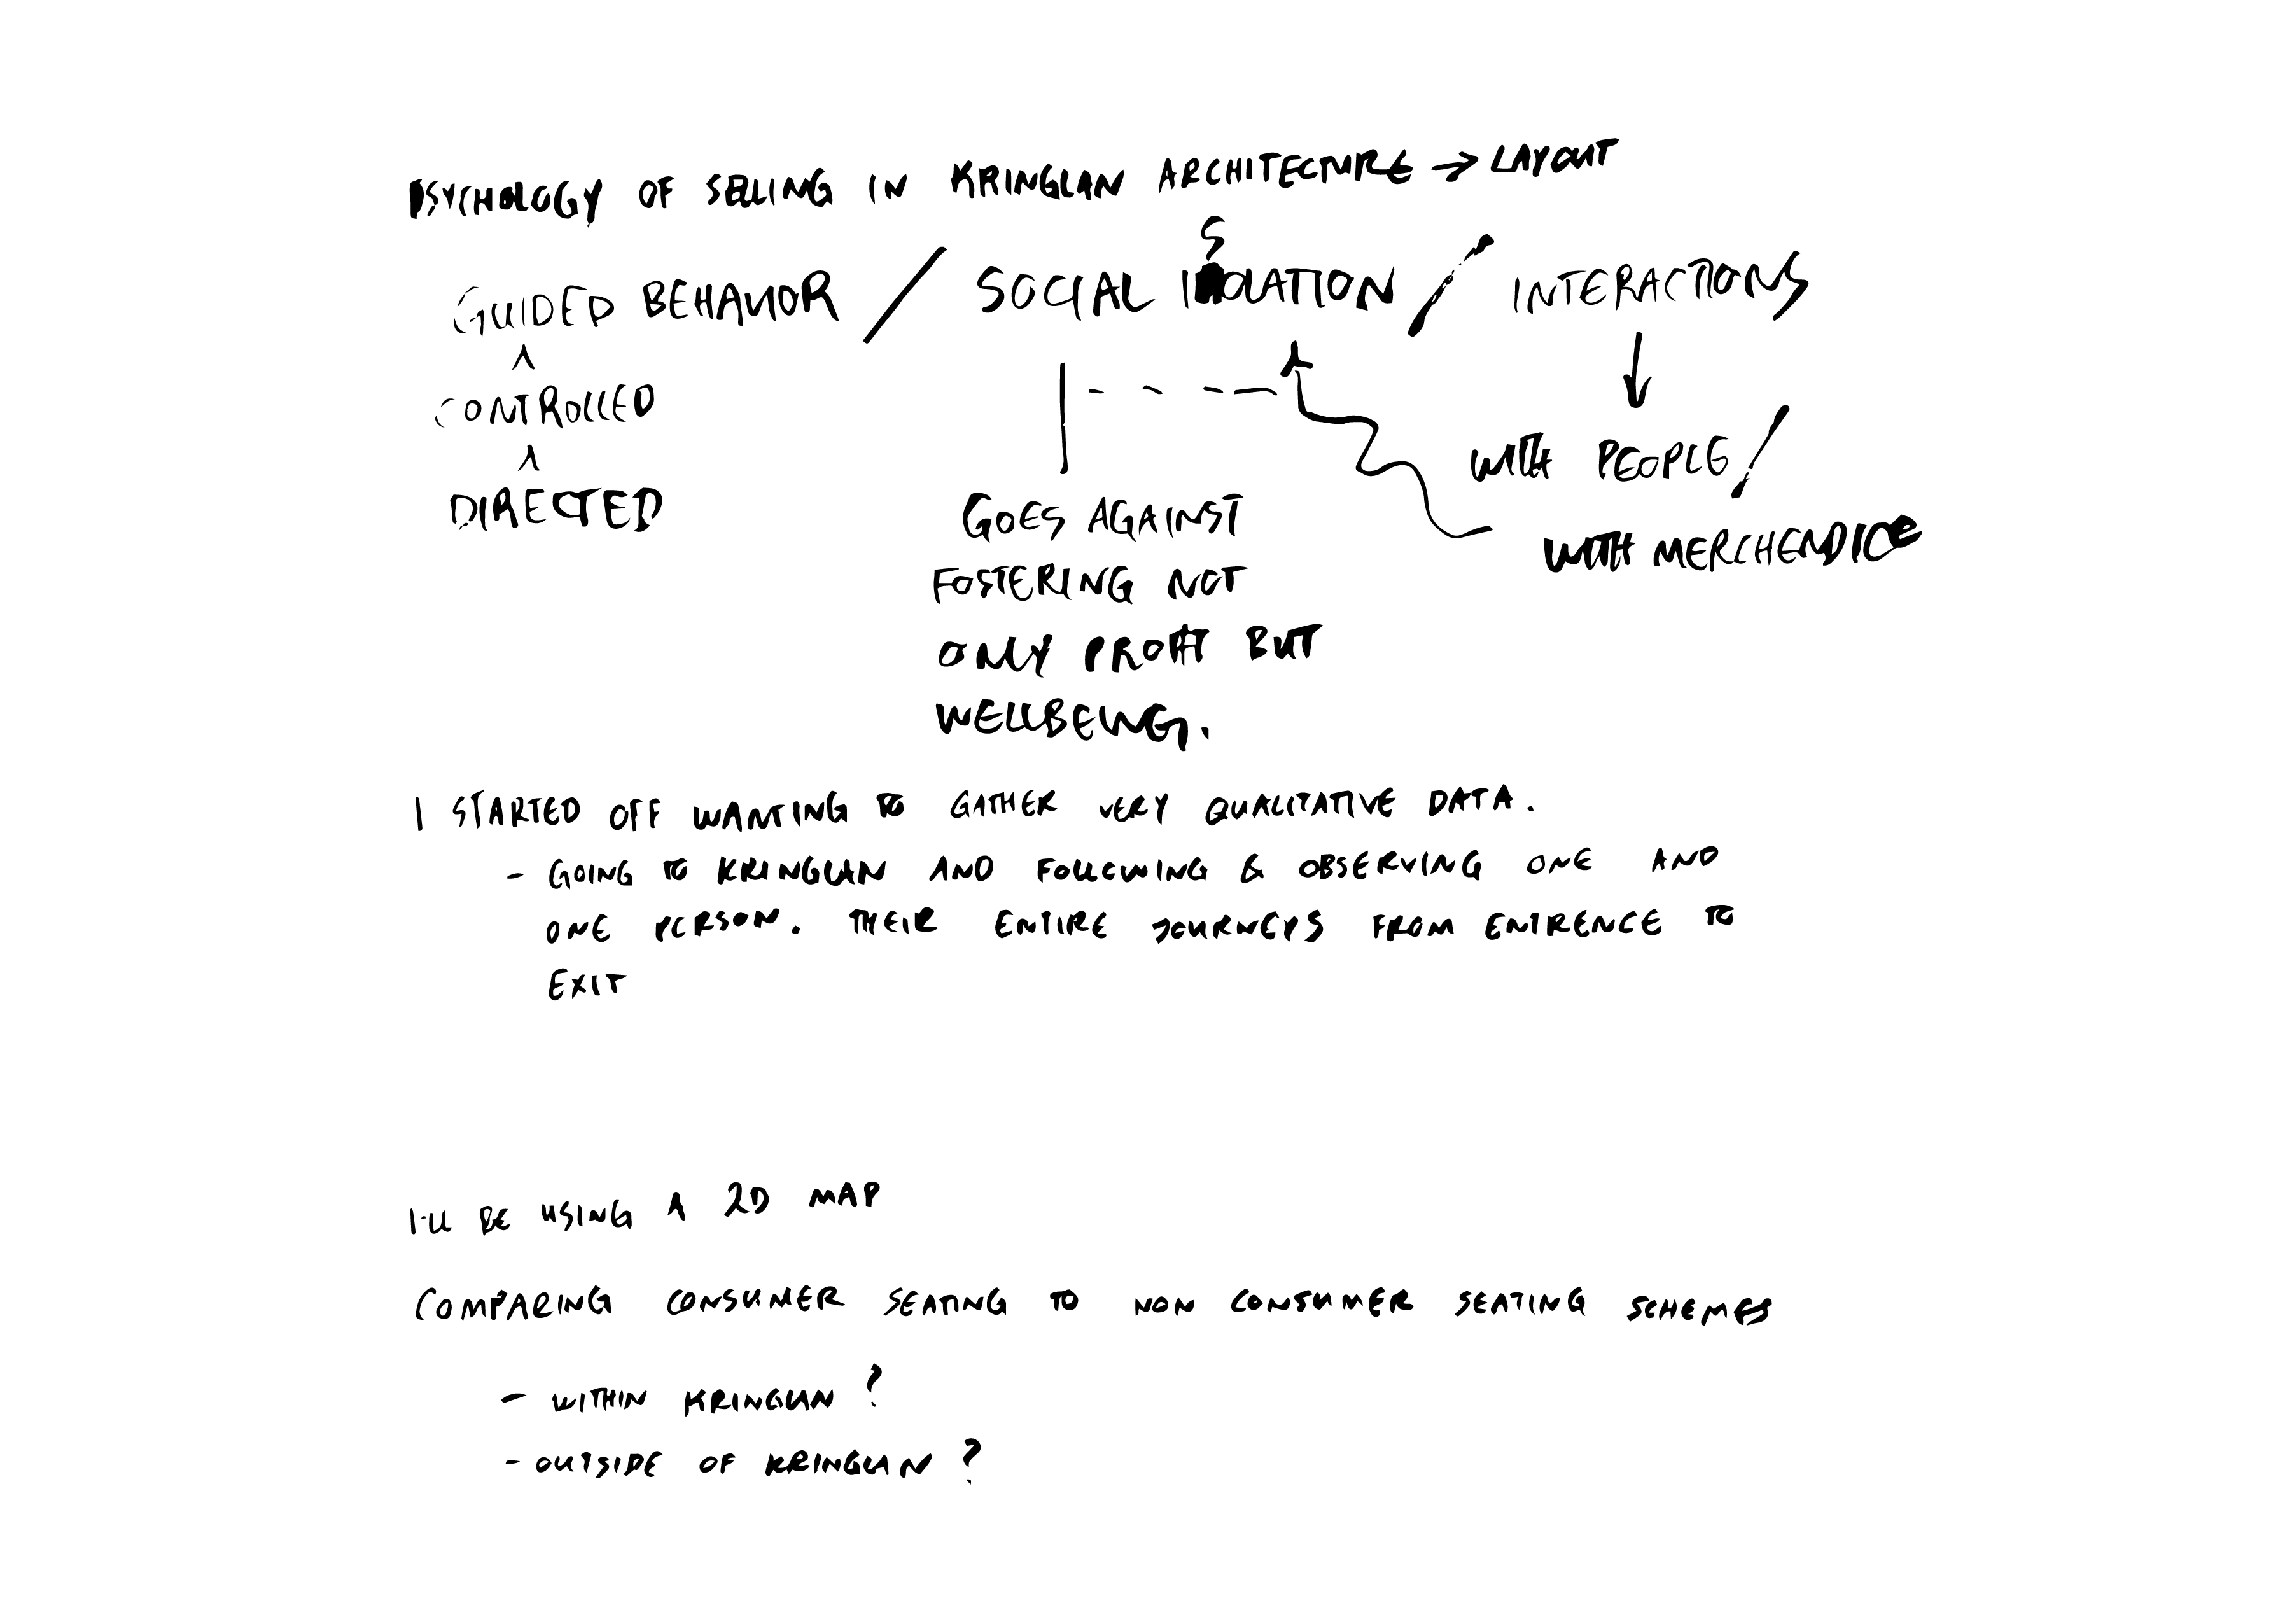 PSYCHOLOGY OF SELLING IN KRINGLAN ARCHITECTURE → LAYOUT
GUIDED BEHAVIOR / SOCIAL ISOLATION / INTERACTIONS
^
CONTROLLED
^
DIRECTED
GOES AGAINST
FOSTERING NOT
ONLY PROFIT BUT
WELLBEING.
WITH PEOPLE /
WITH MERCHENDICE
I STARTED OFF WANTING TO GATHER VERY QUALITATIVE DATA.
- GOING TO KRINGLAN AND FOLLOWING & OBSERVING ONE AND
ONE PERSON. THEIR ENTIRE JOURNEYS FROM ENTRENCE TO
EXIT
I'LL BE USING A 2D MAP
COMPARING CONSUMER SEATING TO NON CONSUMER SEATING SCHEMES
- WITHIN KRINGLAN ?
- OUTSIDE OF KRINGLAN ?